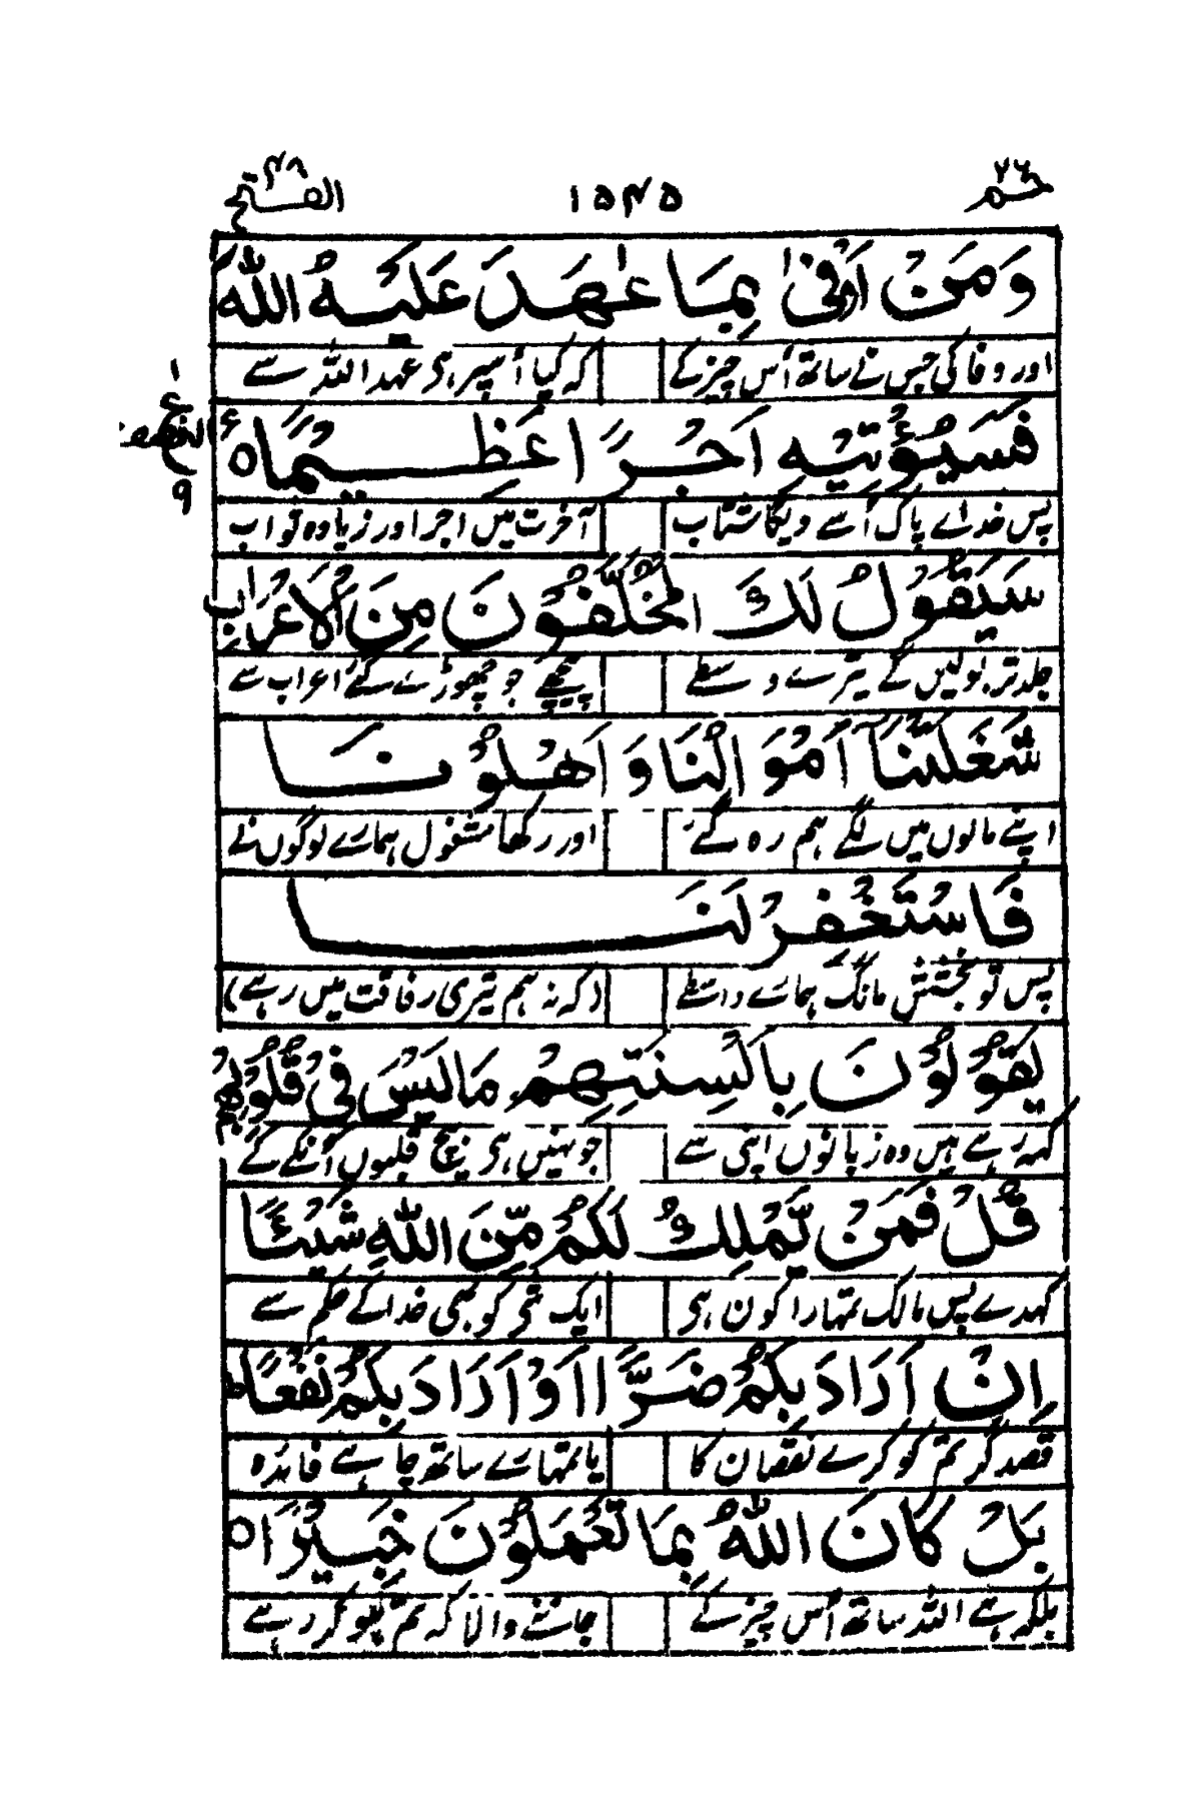 حٰم ٢٦
١٥٤٥
الفتح ٤٨
وَمَنْ اَوْفٰى بِمَا عٰهَدَ عَلَيْهُ اللّٰهَ
اور وفا کی جس نے ساتھ اُس چیز کے
کہ کیا اُسپر ہی عہد اللہ سے
فَسَيُؤْتِيْهِ اَجْرًا عَظِيْمًا ۵
پس خداے پاک اُسے دیگا شتاب
آخرت میں اجر اور زیادہ ثواب
ع
١
٩
سَيَقُوْلُ لَكَ الْمُخَلَّفُوْنَ مِنَ الْاَعْرَابِ
جلدتر بولیں گے تیرے واسطے
پیچھے جو چھوڑے گئے اعراب سے
شَغَلَتْنَآ اَمْوَالُنَا وَاَهْلُوْنَا
اپنے مالوں میں لگے ہم رہ گئے
اور رکھا مشغول ہمارے لوگوں نے
فَاسْتَغْفِرْ لَنَا
پس تو بخشش مانگ ہمارے واسطے
(کہ نہ ہم تیری رفاقت میں رہے)
يَقُوْلُوْنَ بِاَلْسِنَتِهِمْ مَا لَيْسَ فِيْ قُلُوْبِهِمْ
کہہ رہے ہیں وہ زبانوں اپنی سے
جو نہیں ہی بیچ قلبوں اُنکے کے
قُلْ فَمَنْ يَّمْلِكُ لَكُمْ مِّنَ اللّٰهِ شَيْئًا
کہدے پس مالک تمہارا کون ہی
ایک شی کو بھی خدا کے حکم سے
اِنْ اَرَادَ بِكُمْ ضَرًّا اَوْ اَرَادَ بِكُمْ نَفْعًا ط
قصد گر تم کو کرے نقصان کا
یا تمہارے ساتھ چاہے فائدہ
بَلْ كَانَ اللّٰهُ بِمَا تَعْمَلُوْنَ خَبِيْرًا ۵
بلکہ ہے اللہ ساتھ اُس چیز کے
جاننے والا کہ تم ہو کر رہے